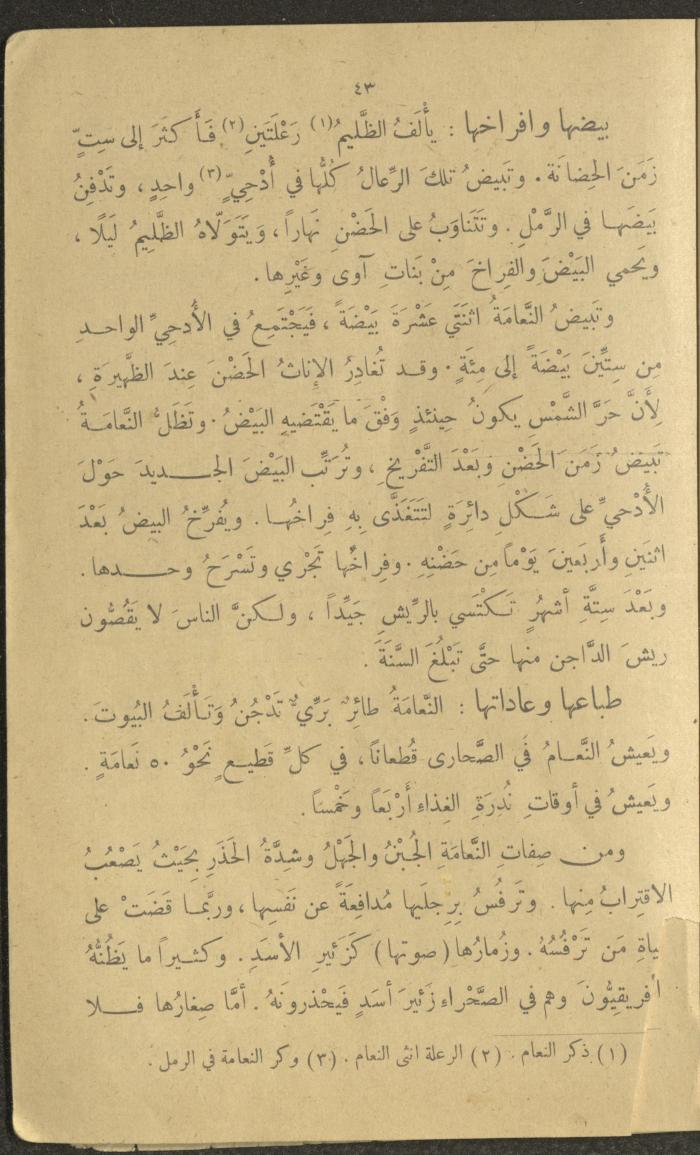 ٤٣
بيضها وافراخها : يأْلَفُ الظَّليمُ(١) رَعْلَتَينِ(٢) فَأَكثَرَ إلى ستٍّ
زَمَنَ الحِضانَة . وتَبيضُ تلكَ الرِّعالُ كُلُّها في أُدْحِيّ(٣) واحِدٍ ، وتَدْفِنُ
بَيضَها في الرَّمْلِ . وتَتَناوَبُ على الحَضْنِ نَهاراً ، وَيَتَوَلّاهُ الظَّليمُ لَيلًا ،
ويَحمي البَيْضَ والفِراخَ مِنْ بَناتِ آوى وغَيْرِها .
وتَبيضُ النَّعامَةُ اثنَتَي عَشْرَةَ بَيْضَةً ، فَيَجْتَمِعُ في الأُدحِيِّ الواحـدِ
مِن سِتِّينَ بَيْضَةً إلى مِئَةٍ . وقـد تُغادِرُ الإناثُ الحَضْنَ عِندَ الظَّهيرَةِ ،
لِأَنَّ حَرَّ الشَّمْسِ يكونُ حينئذٍ وَفْقَ ما يَقْتَضيهِ البَيْضُ . وتَظَلُّ النَّعامَـةُ
تَبيضُ زَمَنَ الحَضْنِ وبَعْدَ التَّفْريخِ ، وتُرَتِّب البَيْضَ الجـديدَ حَوْلَ
الأُدْحيِّ على شَـكْلِ دائِرَةٍ لتَتَغَذَّى بِهِ فِراخُهـا . ويُفرِّخُ البيضُ بَعْدَ
اثنَينِ وأَربَعينَ يَوْماً مِن حَضْنِهِ . وفِراخُها تَجْري وتَسْرَحُ وحـدها .
وبَعْدَ سِتَّةِ أشهُرٍ تَـكْتَسي بالرِّيشِ جَيِّداً ، ولـكنَّ الناسَ لا يَقُصُّون
ريشَ الدَّاجن منها حتَّى تَبْلُغَ السَّنَةَ .
طباعها وعاداتها : النَّعامَةُ طائرٌ بَرِّيٌّ تَدْجُنُ وَتَأْلَفُ البُيوتَ .
ويَعيشُ النَّعـامُ في الصَّحارى قُطعاناً ، في كلِّ قَطيـعٍ نَحْوُ ٥٠ نَعامَةٍ .
ويَعيشُ في أوقاتِ نُدرَةِ الغِذاءِ أَرْبَعاً وَخَمْسًا .
ومن صِفاتِ النَّعامَةِ الجُبْنُ والجَهْلُ وشِدَّةُ الحَذَرِ بحَيْثُ يَصْعُبُ
الاقتِرابُ مِنها . وتَرفُسُ بِرِجلَيها مُدافِعَةً عن نَفسِها ، وربَّمـا قَضَتْ على
ياةِ مَن تَرْفُسُهُ . وزُمارُها ( صوتها ) كَزَئيرِ الأسَدِ . وكثـيراً ما يَظُنُّهُ
فريقيُّونَ وهم في الصَّحْراءِ زَئيرَ أسَدٍ فَيَحْذرونَهُ . أمَّا صِغارُها فـلا
(١) ذكر النعام . (٢) الرعلة انثى النعام . (٣) وكر النعامة في الرمل .